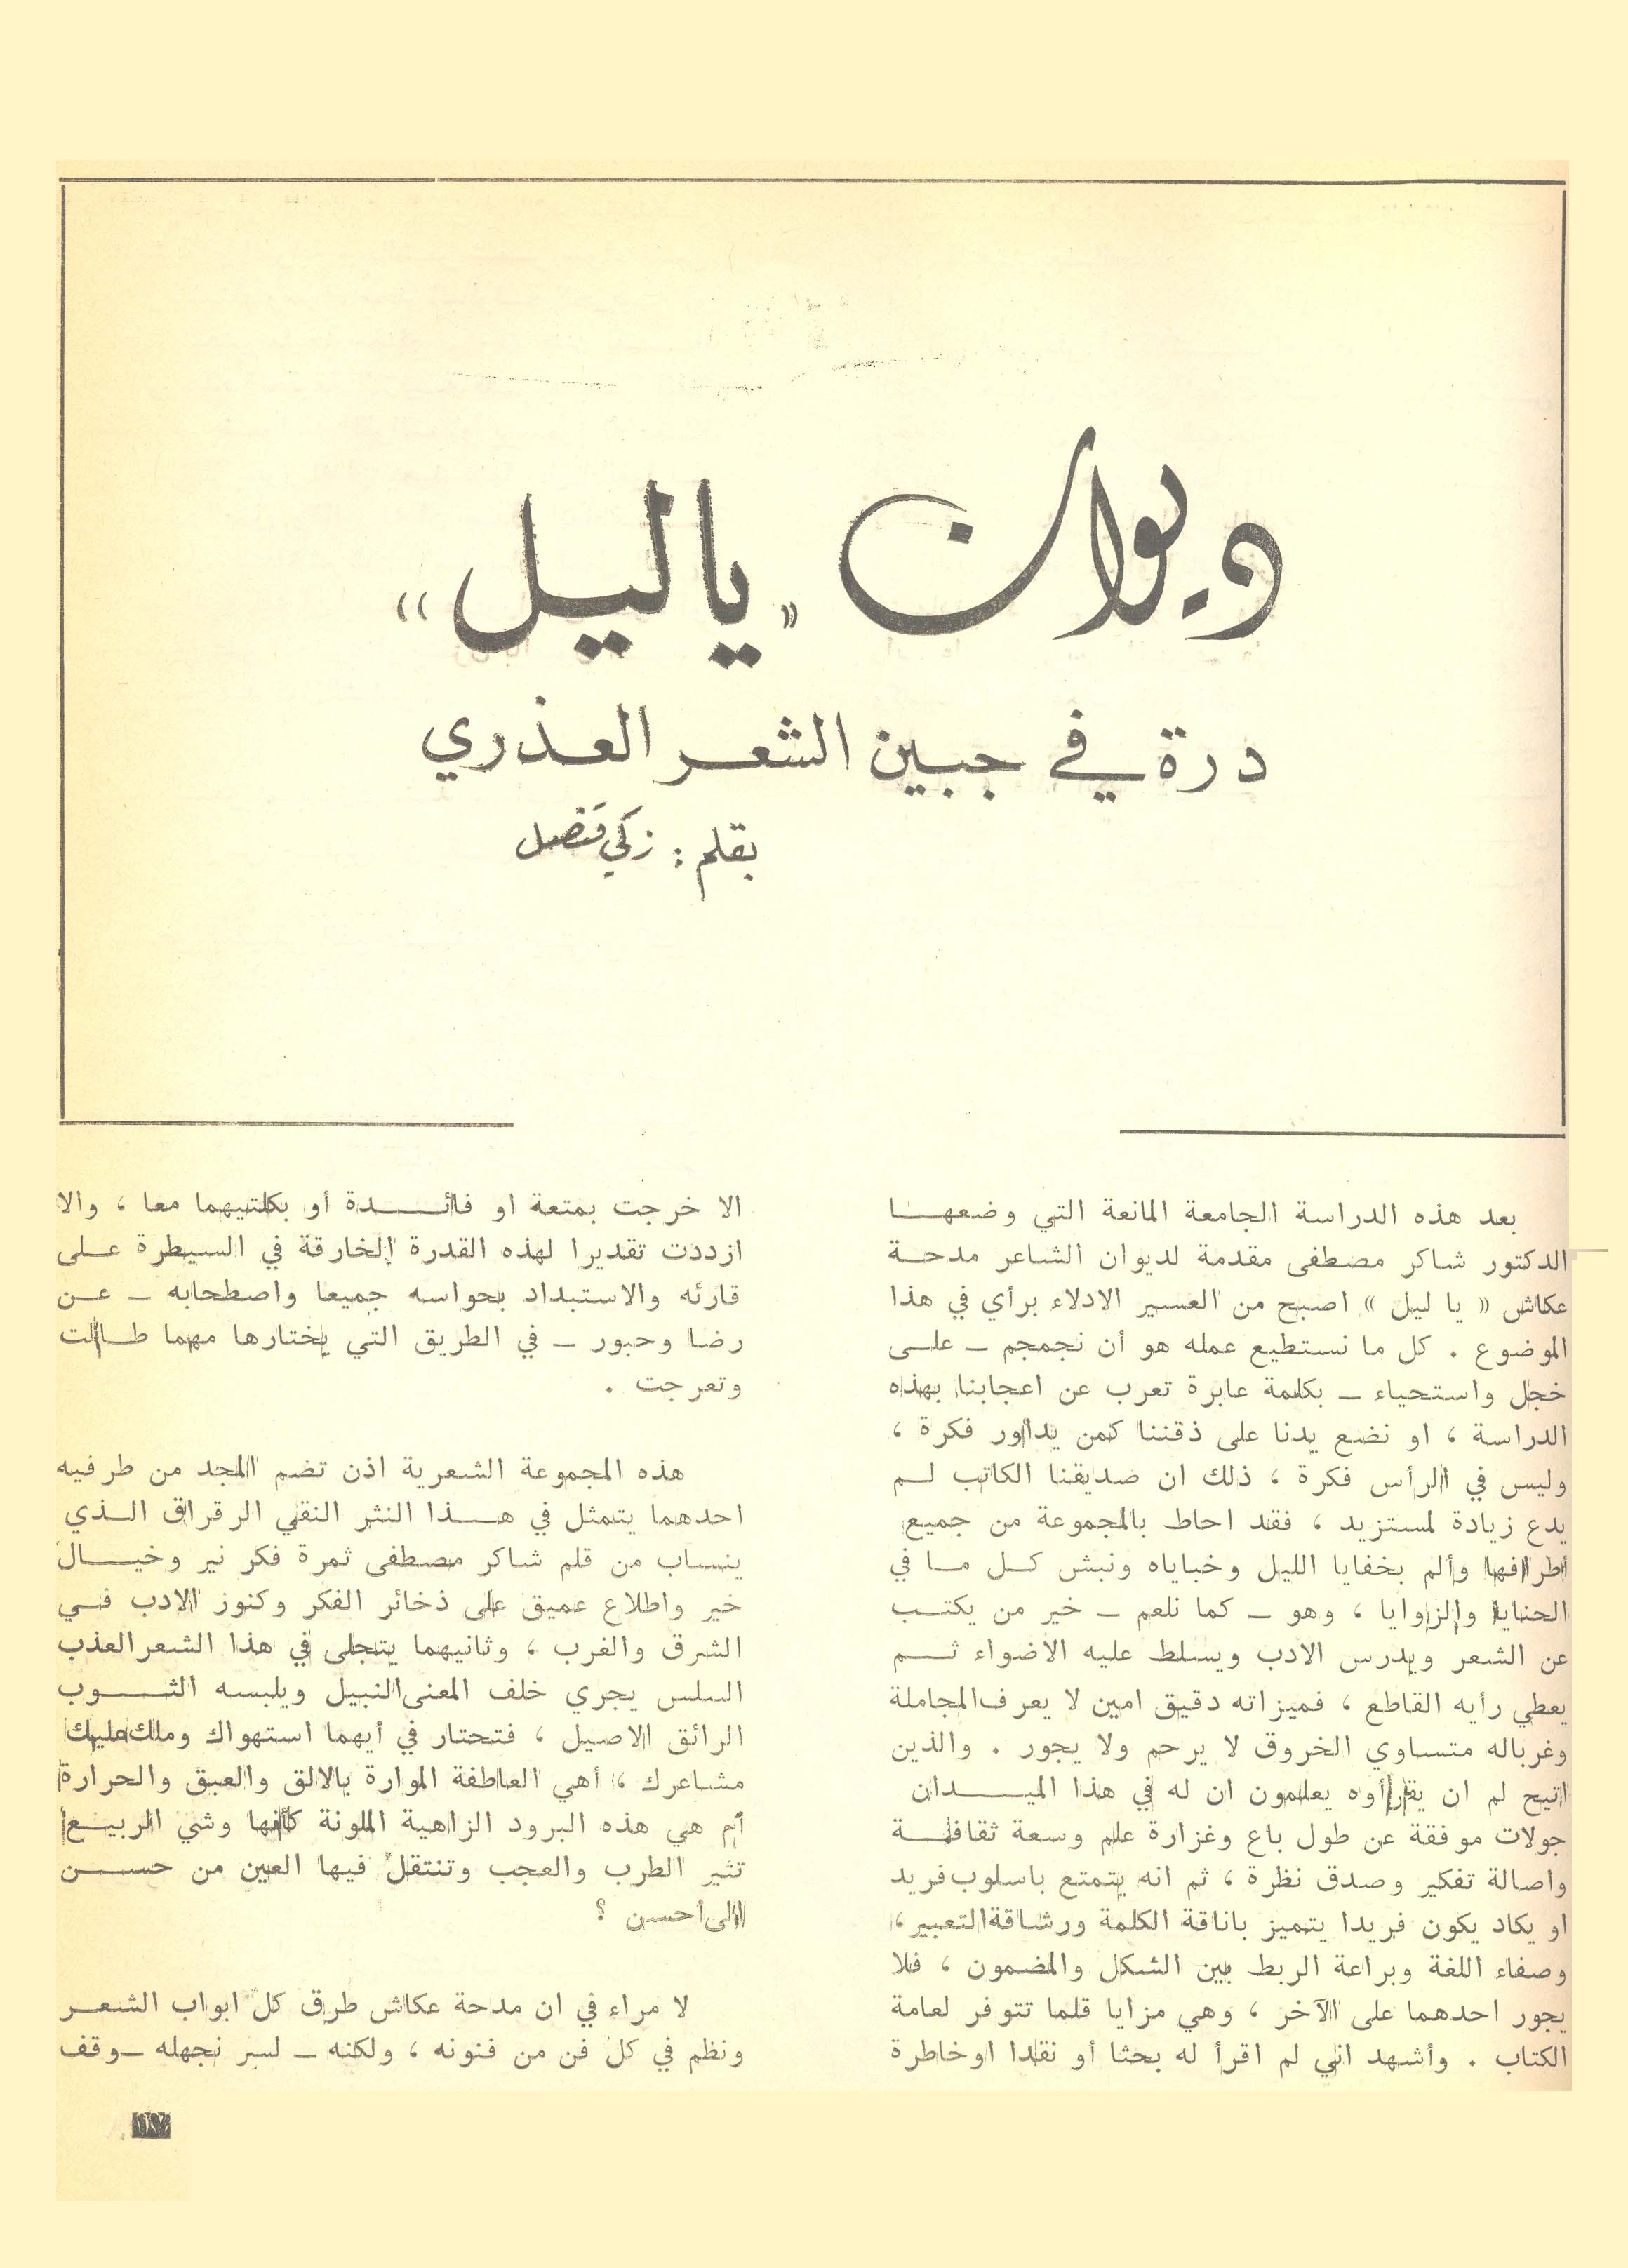 ديوان «يا ليل»
درة في جبين الشعر العذري
بقلم : زكي قنصل
بعد هذه الدراسة الجامعة المانعة التي وضعهــا
الدكتور شاكر مصطفى مقدمة لديوان الشاعر مدحــة
عكاش « يا ليل » اصبح من العسير الادلاء برأي في هذا
الموضوع . كل ما نستطيع عمله هو أن نجمجم ــ علــى
خجل واستحياء ــ بكلمة عابرة تعرب عن اعجابنا بهذه
الدراسة ، او نضع يدنا على ذقننا كمن يداور فكرة ،
وليس في الرأس فكرة ، ذلك ان صديقنا الكاتب لــم
يدع زيادة لمستزيد ، فقد احاط بالمجموعة من جميع
أطرافها وألم بخفايا الليل وخباياه ونبش كــل مــا في
الحنايا والزوايا ، وهو ــ كما نلعم ــ خير من يكتــب
عن الشعر ويدرس الادب ويسلط عليه الاضواء ثــم
يعطي رأيه القاطع ، فميزاته دقيق امين لا يعرف المجاملة
وغرباله متساوي الخروق لا يرحم ولا يجور . والذين
اتيح لم ان يقرأوه يعلمون ان له في هذا الميــدان
جولات موفقة عن طول باع وغزارة علم وسعة ثقافــة
واصالة تفكير وصدق نظرة ، ثم انه يتمتع باسلوب فريد
او يكاد يكون فريدا يتميز باناقة الكلمة ورشاقة التعبير ،
وصفاء اللغة وبراعة الربط بين الشكل والمضمون ، فلا
يجور احدهما على الآخر ، وهي مزايا قلما تتوفر لعامة
الكتاب . وأشهد اني لم اقرأ له بحثا أو نقدا او خاطرة
الا خرجت بمتعة او فائــدة أو بكلتيهما معا ، والا
ازددت تقديرا لهذه القدرة الخارقة في السيطرة علــى
قارئه والاستبداد بحواسه جميعا واصطحابه ــ عــن
رضا وحبور ــ في الطريق التي يختارها مهما طــالت
وتعرجت .
هذه المجموعة الشعرية اذن تضم المجد من طرفيه
احدهما يتمثل في هــذا النثر النقي الرقراق الــذي
ينساب من قلم شاكر مصطفى ثمرة فكر نير وخيــال
خير واطلاع عميق على ذخائر الفكر وكنوز الادب فــي
الشرق والغرب ، وثانيهما يتجلى في هذا الشعر العذب
السلس يجري خلف المعنى النبيل ويلبسه الثــوب
الرائق الاصيل ، فتحتار في أيهما استهواك وملك عليك
مشاعرك ، أهي العاطفة الموارة بالالق والعبق والحرارة
أم هي هذه البرود الزاهية الملونة كأنها وشي الربيــع
تثير الطرب والعجب وتنتقل فيها العين من حســن
الى أحسن ؟
لا مراء في ان مدحة عكاش طرق كل ابواب الشعــر
ونظم في كل فن من فنونه ، ولكنه ــ لسر نجهله ــ وقف